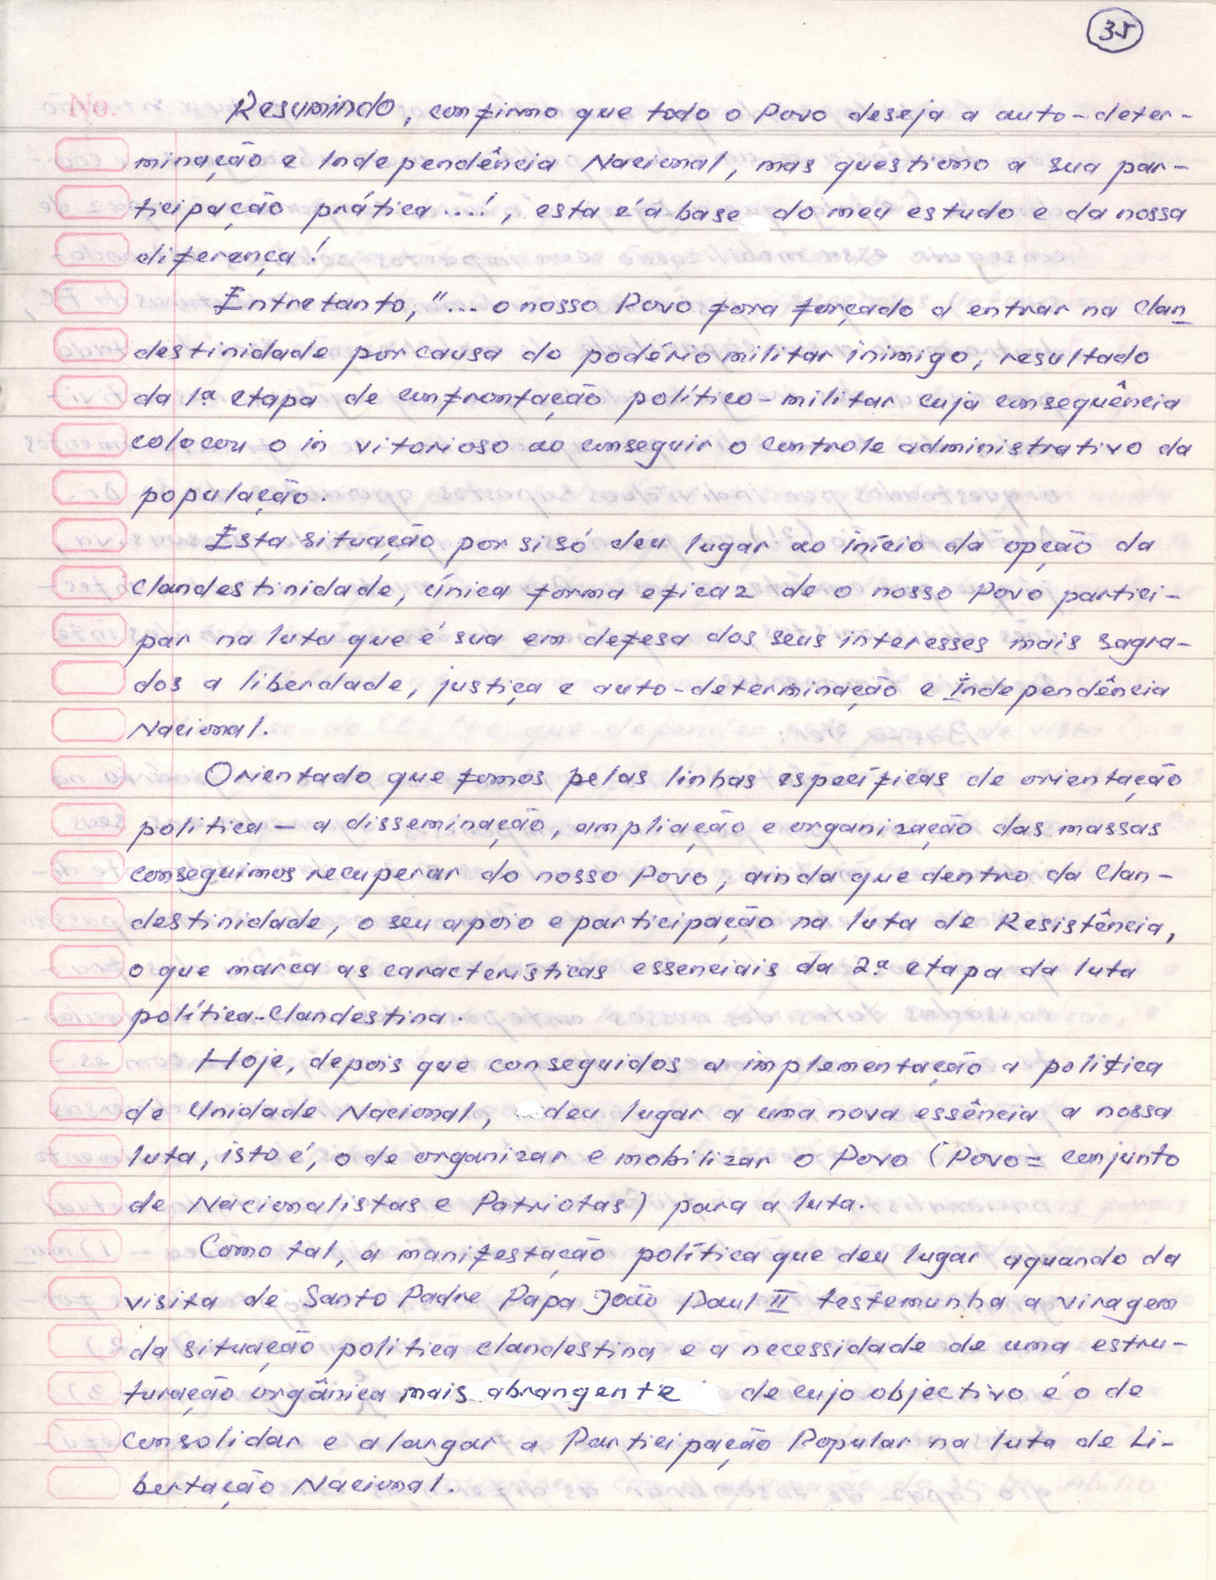 35
Resumindo, confirmo que todo o Povo deseja a auto-deter-
minação e Independência Nacional, mas questiono a sua par-
ticipação prática...!, esta é a base do meu estudo e da nossa
diferença!
Entretanto, "... o nosso Povo fora forçado a entrar na Clan
destinidade por causa do podério militar inimigo, resultado
da 1ª etapa de confrontação político-militar cuja consequência
colocou o in vitorioso ao conseguir o controle administrativo da
população.
Esta situação por si só deu lugar ao início da opção da
Clandestinidade, única forma eficaz de o nosso Povo partici-
par na luta que é sua em defesa dos seus interesses mais sagra-
dos a liberdade, justiça e auto-determinação e Independência
Nacional.
Orientado que fomos pelas linhas específicas de orientação
política - a disseminação, ampliação e organização das massas
conseguimos recuperar do nosso Povo, ainda que dentro da Clan-
destinidade, o seu apoio e participação na luta de Resistência,
o que marca as características essenciais da 2ª etapa da luta
política-Clandestina.
Hoje, depois que conseguidos a implementação a política
de Unidade Nacional, deu lugar a uma nova essência a nossa
luta, isto é, o de organizar e mobilizar o Povo (Povo = conjunto
de Nacionalistas e Patriotas) para a luta.
Como tal, a manifestação política que deu lugar aquando da
visita de Santo Padre Papa João Paul II testemunha a viragem
da situação política clandestina e a necessidade de uma estru-
turação orgânica mais abrangente de cujo objectivo é o de
Consolidar e alargar a Participação Popular na luta de Li-
bertação Nacional.